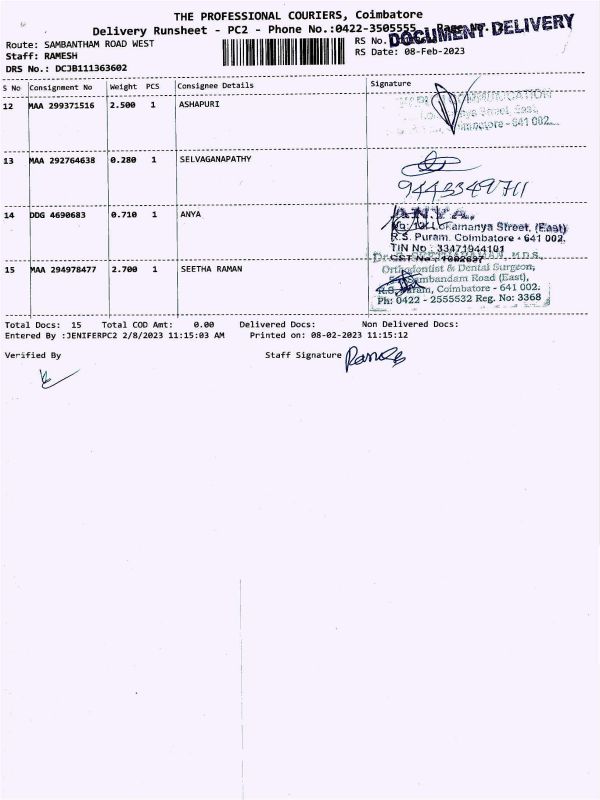 THE PROFESSIONAL COURIERS, Coimbatore
Delivery Runsheet - PC2 - Phone No.:0422-3505555
DOCUMENT DELIVERY
Route: SAMBANTHAM ROAD WEST
RS No.
Staff: RAMESH
RS Date: 08-Feb-2023
DRS No.: DCJB111363602
S No Consignment No Weight PCS Consignee Details Signature
12 MAA 299371516 2.500 1 ASHAPURI
641 002.
13 MAA 292764638 0.280 1 SELVAGANAPATHY
14 DDG 4690683 0.710 1 ANYA
ANYA.
Lokamanya Street, (East)
R.S. Puram, Coimbatore - 641 002.
TIN No : 33471944101
15 MAA 294978477 2.700 1 SEETHA RAMAN
Orthodontist & Dental Surgeon,
Sambandam Road (East),
Coimbatore - 641 002.
Ph: 0422 - 2555532 Reg. No: 3368
Total Docs: 15 Total COD Amt: 0.00 Delivered Docs: Non Delivered Docs:
Entered By :JENIFERPC2 2/8/2023 11:15:03 AM Printed on: 08-02-2023 11:15:12
Verified By Staff Signature